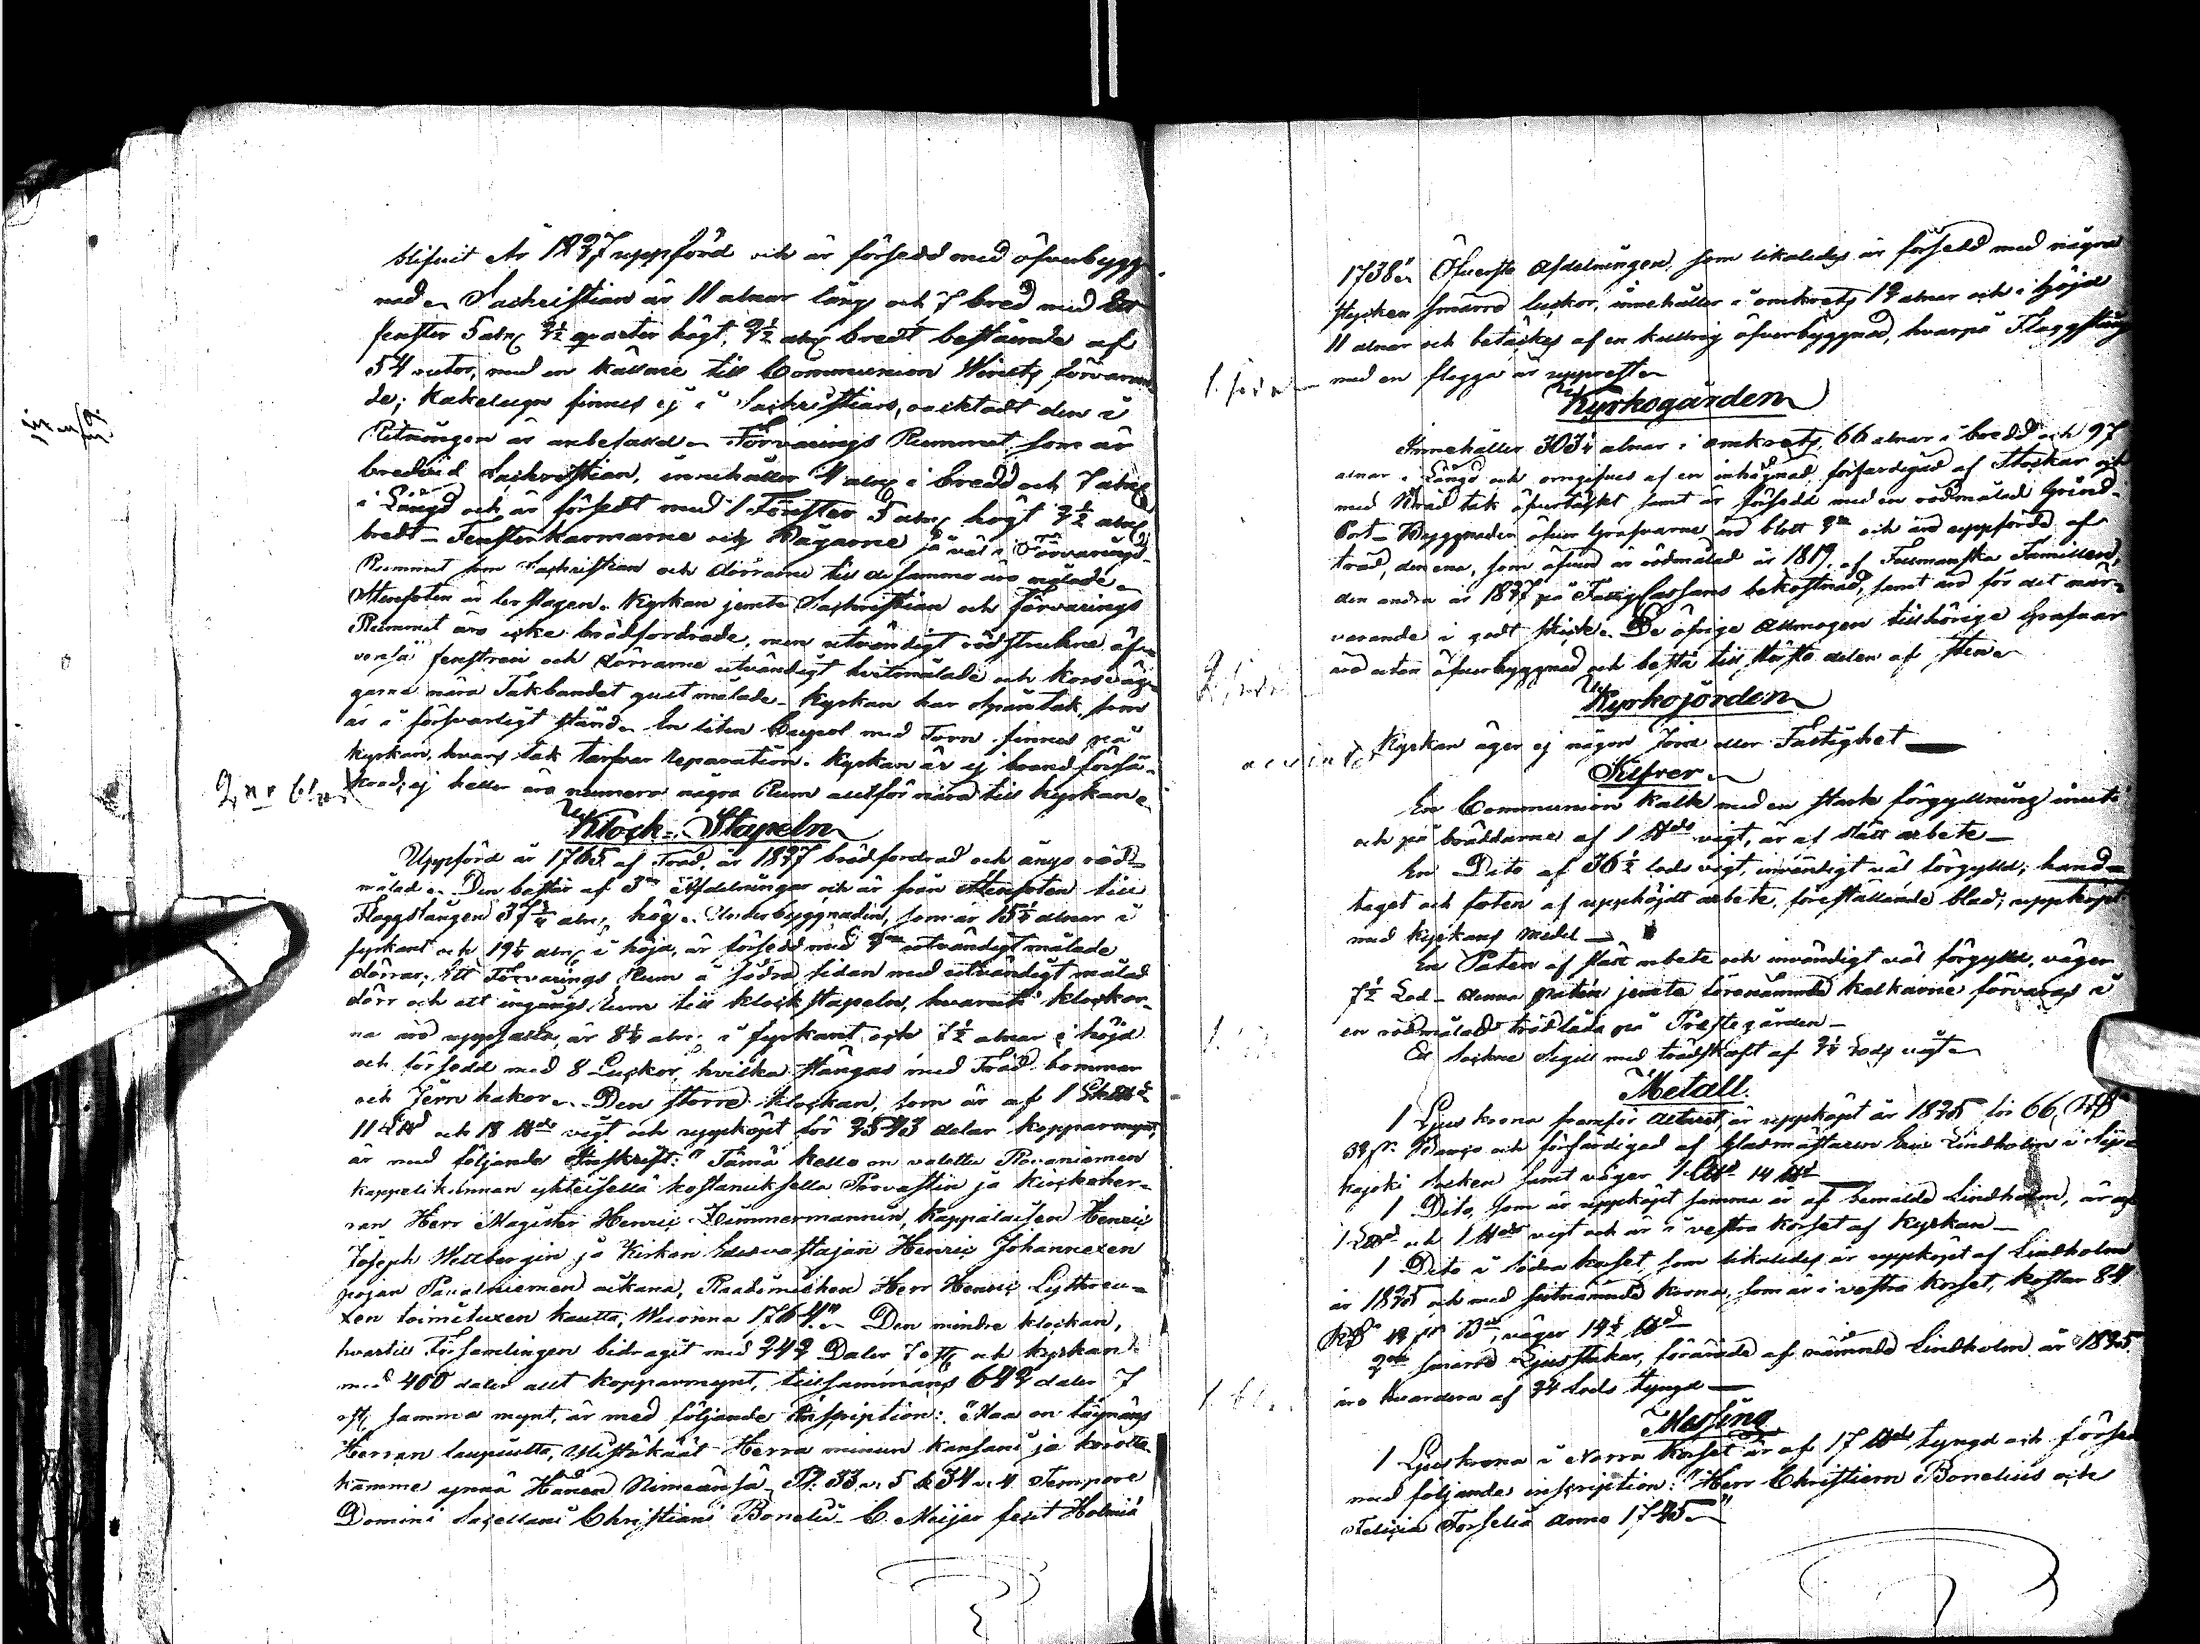 blifvit År 1827 uppförd och är försedd med öfverbygg-
nad. Sachristian är 11 alnar lång och 7 bred med Ett
fenster 5 alnr 3½ qvarter högt, 2½ alnr bredt bestående af
54 rutor, med en källare till Communion Winets förvaran-
de; kakelugn finnes ej i Sachristian, oacktadt den i
Ritningen är anbefalld. Förvarings Rummet, som är
bredvid Sachristian, innehåller 4 alnr i bredd och 7 alnr
i Längd och är försedt med 1 Fönster 5 alnr högt 2½ alnr
bredt. Fensterkarmarne och Bågarne så väl i Förvarings
Rummet som Sachristian och dörrarne till de samma äro målade.
Stenfoten är lerslagen. Kyrkan jemte Sachristian och förvarings
Rummet äro icke brädfordrade, men utvändigt rödstrukne äf-
venså fenstren och dörrarne utvändigt hvitmålade och
garne nära Takbandet gulmålade. Kyrkan har spåntak, som
är i försvarligt stånd. En liten Cupol med Torn finnes på
kyrkan, hvars tak tarfvar reparation. Kyrkan är ej brandförsä-
krad; ej heller äro numera några Rum alltför nära till kyrkan.
Klock-Stapeln
Uppförd år 1765 af Träd, år 1827 brädfordrad och ånyo röd-
målad. Den består af 3ne Afdelningar och är från stenfoten till
Flaggstången 37¼ alnr hög. Underbyggnaden, som är 15¼ alnar i
fyrkant och 19½ alnr i höjd, är försedd med 2ne utvändigt målade
dörrar; Ett Förvarings Rum å södra sidan med utvändigt målad
dörr och ett ingångs Rum till klockstapeln, hvaruti klockor-
na äro uppsatte, är 8¼ alnr i fyrkant och 7½ alnar i höjd
och försedd med 8 Luckor, hvilka stängas med Träd bommar
och Jern hakor. Den större klockan, som är af 1
11 L℔ och 18 ℔ vigt och uppköpt för 2543 daler kopparmynt,
är med följande Inskrift: "Tämä kello on valettu Rovaniemen
kappelikunnan yhteisellä kostanuksella Provastin ja kirckoher-
ran Herr Magister Henric Zimmermannin, Kappalaisen Henric
Joseph Wettbergin ja Kirkon Edesvastajan Henric Johannexen
pojan Pavalniemen aikana, Raadimiehen Herr Henric Lythreu-
xen toimituxen kautta, Wuonna 1764." Den mindre klockan,
hvartill Församlingen bidragit med 242 Daler 7 öre och kyrkan
med 400 daler allt kopparmynt, tillsammans 642 daler 7
öre samma mynt, är med följande Inscription: "Maa on täynnäns
Herran laupiutta, ylistäkäät Herra minun kansani ja
kämme ynnä Hänen Nimeänsä Ps. 33 v. 5 & 34 v. 4 Tempore
Domini Sacellani Christiani Bonelii C. Meijer fecit Holmiæ
1738". Öfversta Afdelningen, som likaledes är försedd med några
stycken smärre luckor, innehåller i omkrets 12 alnar och i höjd
11 alnar och betäckes af en kullrig öfverbyggnad, hvarpå Flaggstång
med en flagga är upprest.
Kyrkogården
Innehåller 303¼ alnar i omkrets, 66 alnar i bredd och 97
alnar i Längd och omgifves af en inhägnad förfärdigad af Stockar och
med Bräd tak öfvertäckt samt är försedd med en rödmålad Grind-
Port. Byggnader öfver Grafvarne äro blott 2ne och äro uppförde af
träd, den ena, som äfven är rödmålad år 1819, af Familien,
den andra år 1827 på Fattig Cassans bekostnad, samt äro för det när-
varande i godt skick. De öfrige Allmogen tillhörige Grafvar
äro utan öfverbyggnad och bestå till största delen af sten.
Kyrkojorden
Kyrkan äger ej någon Jord eller Fastighet
Silfver
En Communion Kalk med en stark förgyllning inuti
och på bräddarne af 1 ℔ vigt, är af slätt arbete
En Dito af 36½ lods vigt, invändigt väl förgylld; hand-
taget och foten af upphöjdt arbete, föreställande blad; uppköpt
med kyrkans medel
En Paten af slätt arbete och invändigt väl förgylld, väger
7½ Lod. denna paten jemte förenämnde kalkarne förvaras i
en rödmålad trädlåda på Prästegården.
Ett Sockne Sigill med trädskaft af 2¼ Lods vigt
Metall.
1 Ljus krona framför altaret är uppköpt år 1825 för 66
32 s. Banco och förfärdigad af Gladmästaren Eric Lindholm i
socken samt väger 1 L℔ 14 ℔
1 Dito, som är uppköpt samma år af bemälde Lindholm, är af
1 L℔ och 1 ℔ vigt och är i vestra korset af Kyrkan
1 Dito i södra korset, som likaledes är uppköpt af Lindholm
år 1825 och med sistnämnde krona, som är i vestra korset, kostar 84
väger 14½ ℔
2ne smärre Ljusstakar, förärade af nämnde Lindholm år 1825
äro hvardera af 24 Lods tyngd
Messing
1 Ljuskrona i Norra Korset är af 17 ℔ tyngd och försedd
med följande inscription: "Herr Christiern Bonelius och
Felicia Forselia Anno 1745."